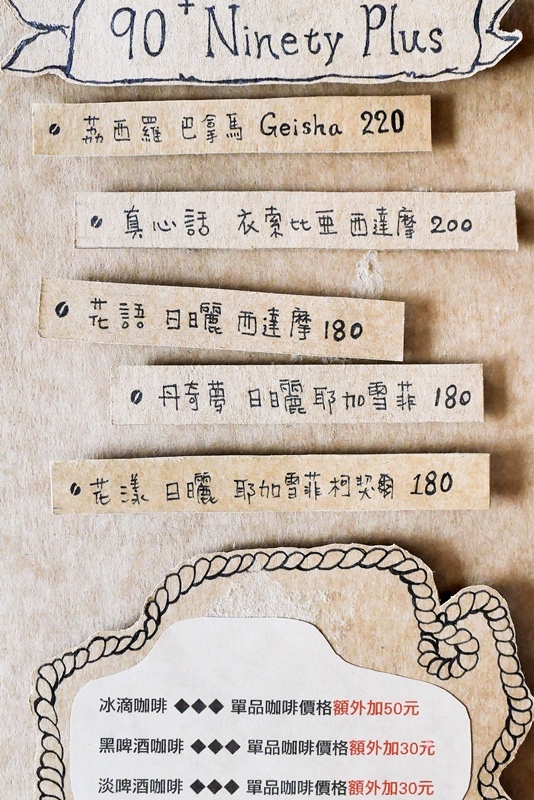 90+ Ninety Plus
荔西羅 巴拿馬 Geisha 220
真心話 衣索比亞 西達摩 200
花語 日曬 西達摩 180
丹奇夢 日曬 耶加雪菲 180
花漾 日曬 耶加雪菲柯契爾 180
冰滴咖啡 ◆◆◆ 單品咖啡價格額外加50元
黑啤酒咖啡 ◆◆◆ 單品咖啡價格額外加30元
淡啤酒咖啡 ◆◆◆ 單品咖啡價格額外加30元